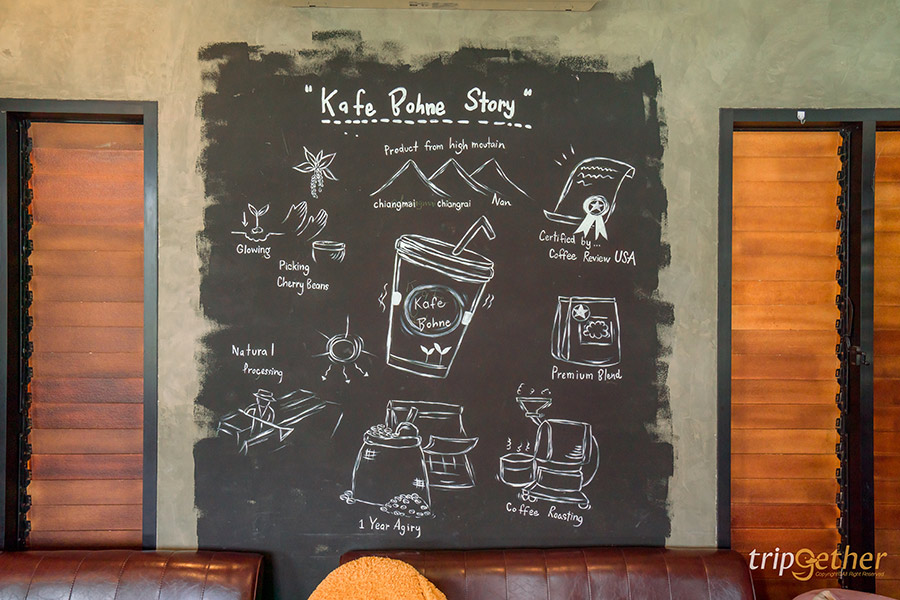 "Kafe Bohne Story"
Product from high moutain
chiangmai chiangrai Nan
Glowing
Picking
Cherry Beans
Certified by...
Coffee Review USA
Kafe
Bohne
Natural
Processing
Premium Blend
1 Year Agiry
Coffee Roasting
tripGether
Copyright All Right Reserved